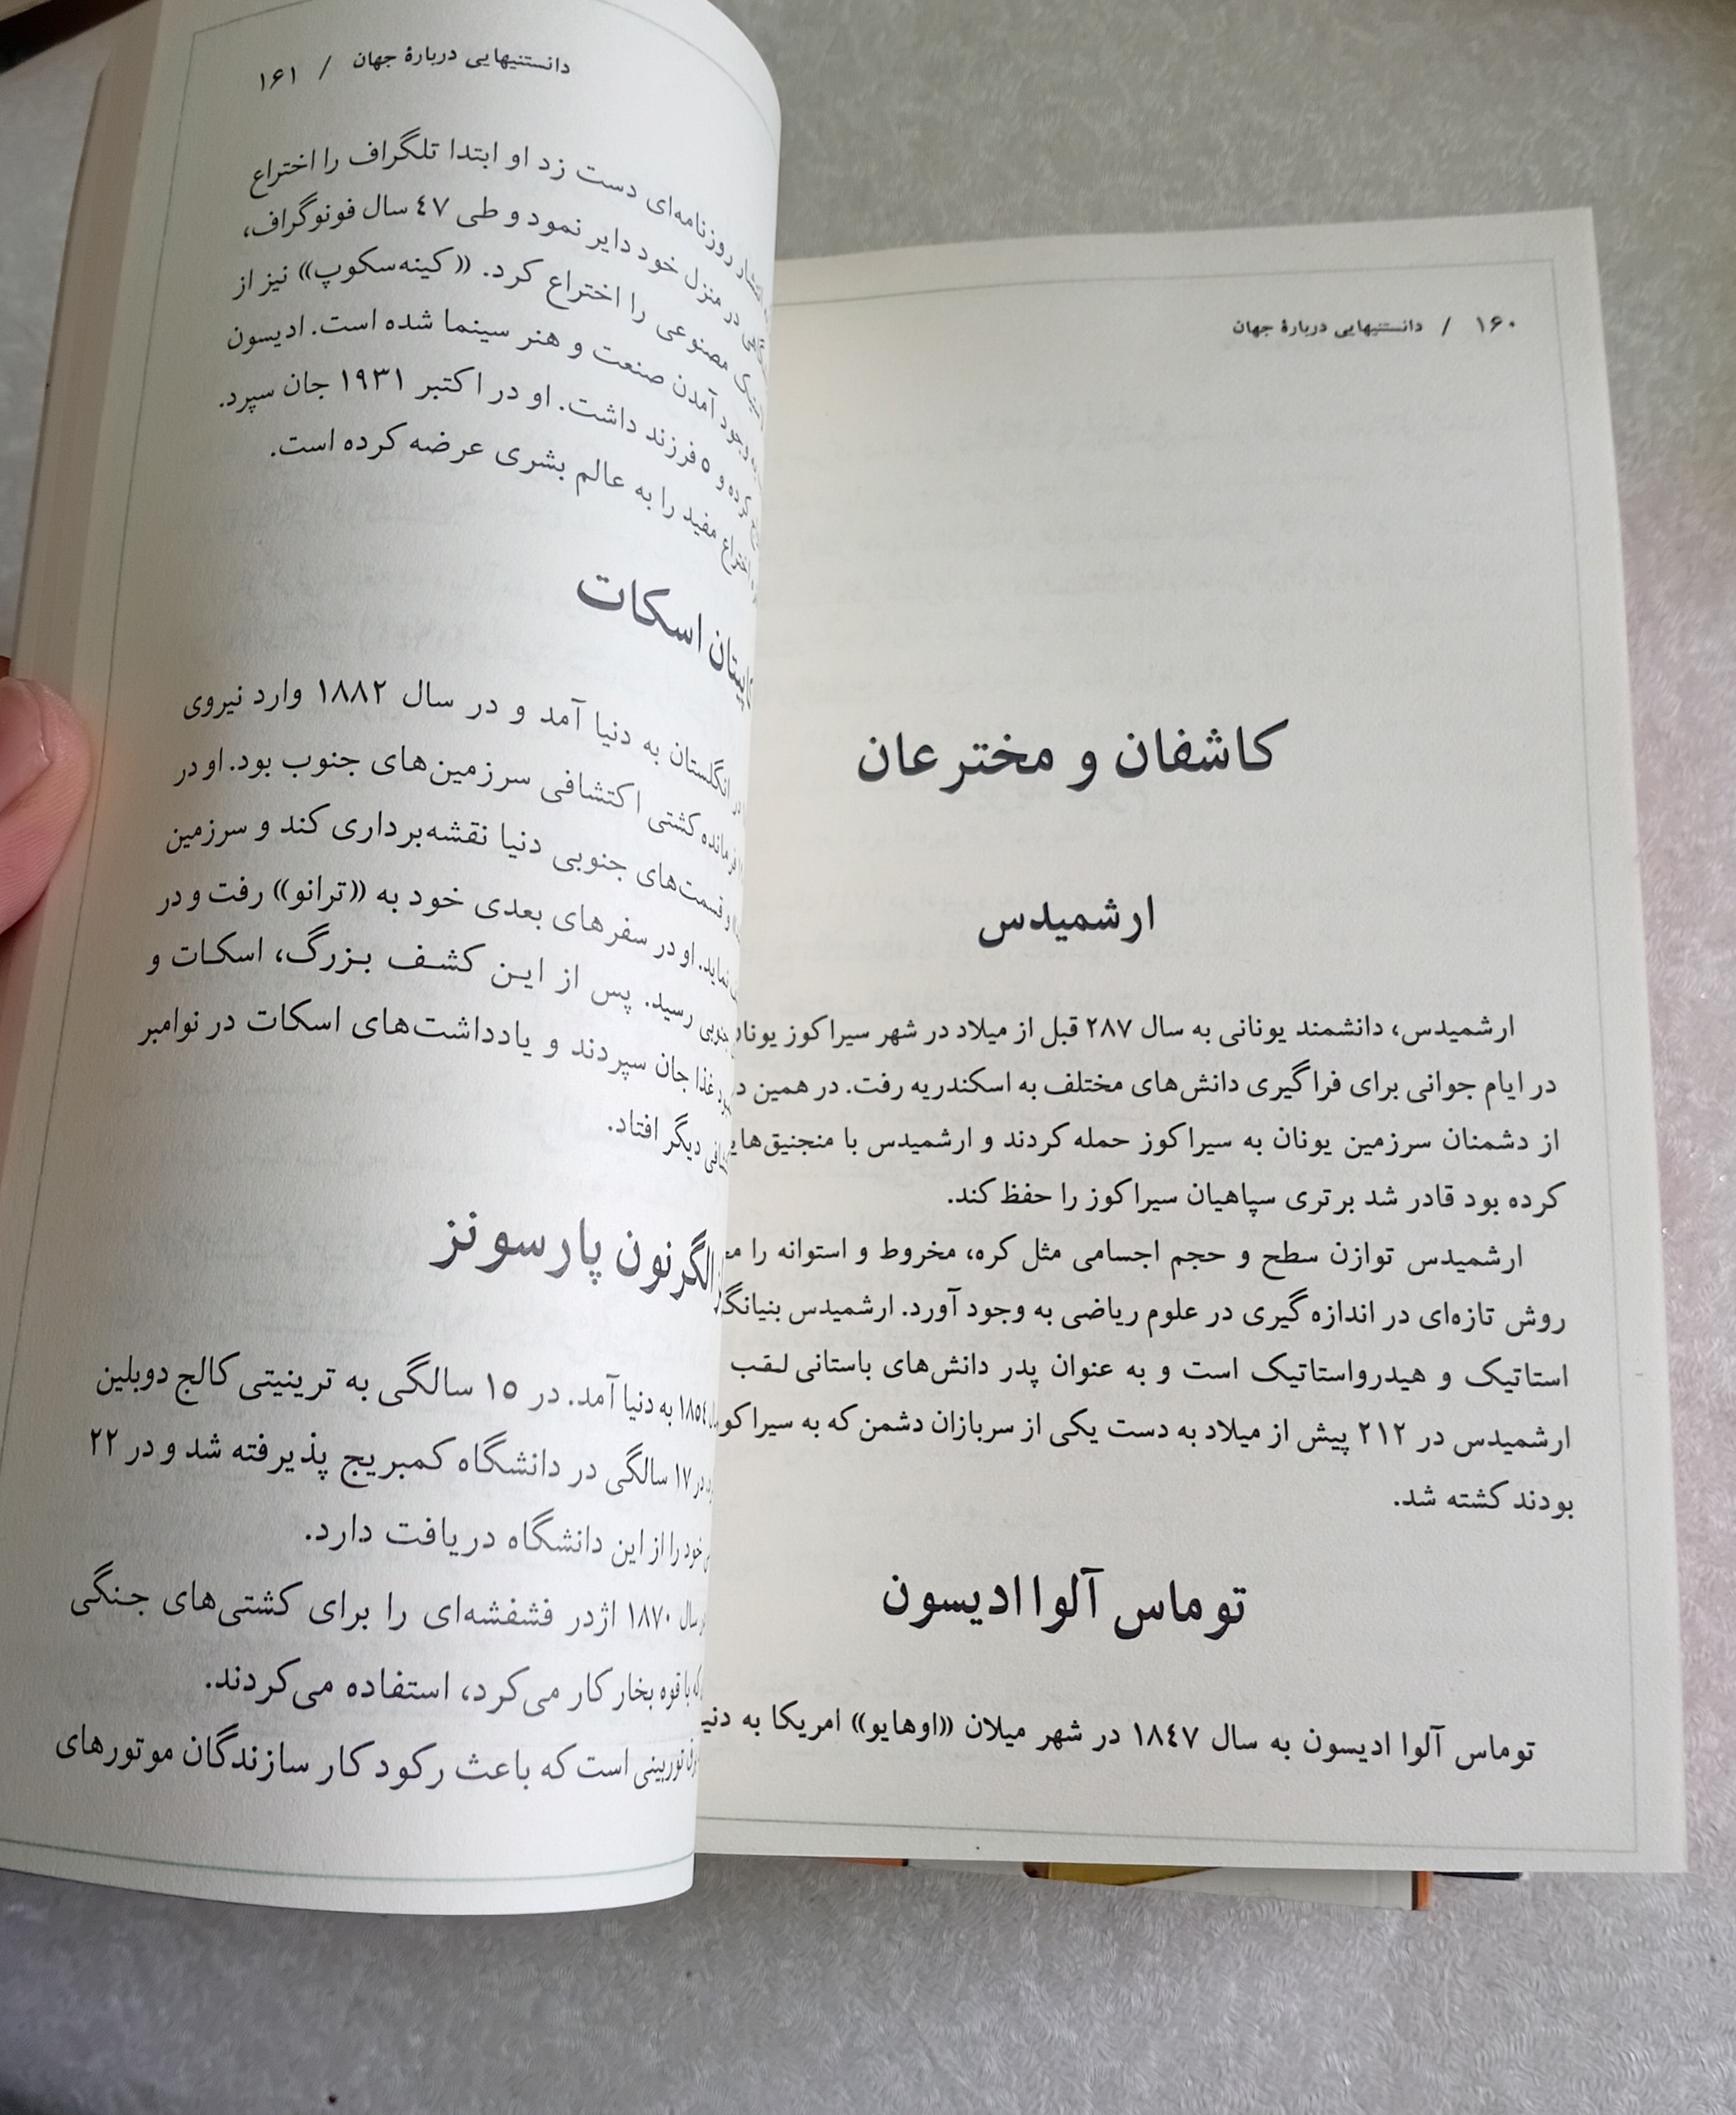 ۱۶۰ / دانستنیهایی دربارهٔ جهان
کاشفان و مخترعان
ارشمیدس
ارشمیدس، دانشمند یونانی به سال ۲۸۷ قبل از میلاد در شهر سیراکوز
در ایام جوانی برای فراگیری دانش‌های مختلف به اسکندریه رفت. در همین
از دشمنان سرزمین یونان به سیراکوز حمله کردند و ارشمیدس با
کرده بود قادر شد برتری سپاهیان سیراکوز را حفظ کند.
ارشمیدس توازن سطح و حجم اجسامی مثل کره، مخروط و استوانه را
روش تازه‌ای در اندازه‌گیری در علوم ریاضی به وجود آورد. ارشمیدس
استاتیک و هیدرواستاتیک است و به عنوان پدر دانش‌های باستانی لقب
ارشمیدس در ۲۱۲ پیش از میلاد به دست یکی از سربازان دشمن که به
بودند کشته شد.
توماس آلوا ادیسون
توماس آلوا ادیسون به سال ۱۸٤۷ در شهر میلان «اوهایو» امریکا به
دانستنیهایی دربارهٔ جهان / ۱۶۱
روزنامه‌ای دست زد او ابتدا تلگراف را اختراع
در منزل خود دایر نمود و طی ٤۷ سال فونوگراف،
مصنوعی را اختراع کرد. «کینه‌سکوپ» نیز از
وجود آمدن صنعت و هنر سینما شده است. ادیسون
کرده و ۵ فرزند داشت. او در اکتبر ۱۹۳۱ جان سپرد.
اختراع مفید را به عالم بشری عرضه کرده است.
اسکات
در انگلستان به دنیا آمد و در سال ۱۸۸۲ وارد نیروی
فرمانده کشتی اکتشافی سرزمین‌های جنوب بود. او در
و قسمت‌های جنوبی دنیا نقشه‌برداری کند و سرزمین
نماید. او در سفرهای بعدی خود به «ترانو» رفت و در
جنوبی رسید. پس از این کشف بزرگ، اسکات و
غذا جان سپردند و یادداشت‌های اسکات در نوامبر
دیگر افتاد.
الگرنون پارسونز
۱۸۵٤ به دنیا آمد. در ۱۵ سالگی به ترینیتی کالج دوبلین
در ۱۷ سالگی در دانشگاه کمبریج پذیرفته شد و در ۲۲
خود را از این دانشگاه دریافت دارد.
سال ۱۸۷۰ اژدر فشفشه‌ای را برای کشتی‌های جنگی
که با قوه بخار کار می‌کرد، استفاده می‌کردند.
توربینی است که باعث رکود کار سازندگان موتورهای